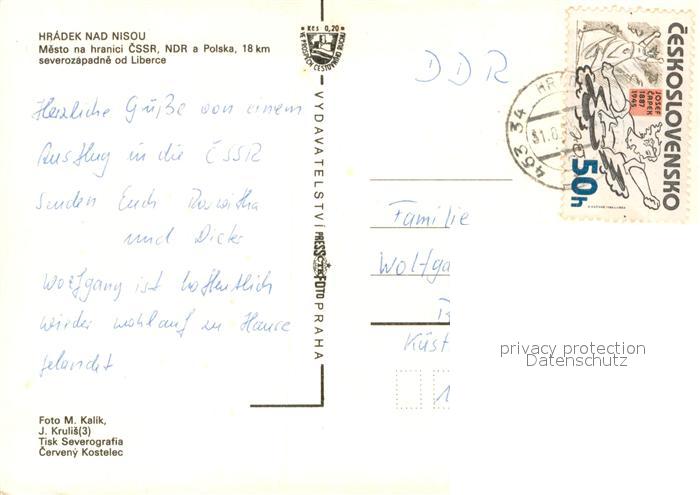 HRÁDEK NAD NISOU
Město na hranici ČSSR, NDR a Polska, 18 km
severozápadně od Liberce
Herzliche Grüße von einem
Ausflug in die ČSSR
senden Euch
und Dieter
Wolfgang ist hoffentlich
wieder wohlauf zu Hause
gelandet
Foto M. Kalík,
J. Kruliš(3)
Tisk Severografia
Červený Kostelec
Kčs 0,20
VE PROSPĚCH CESTOVNÍHO RUCHU
VYDAVATELSTVÍ PRESSFOTO PRAHA
DDR
463 34
HR
31.8.
ČESKOSLOVENSKO
JOSEF
ČAPEK
1887
1945
50h
Familie
Wolfga
Küst
1
privacy protection
Datenschutz